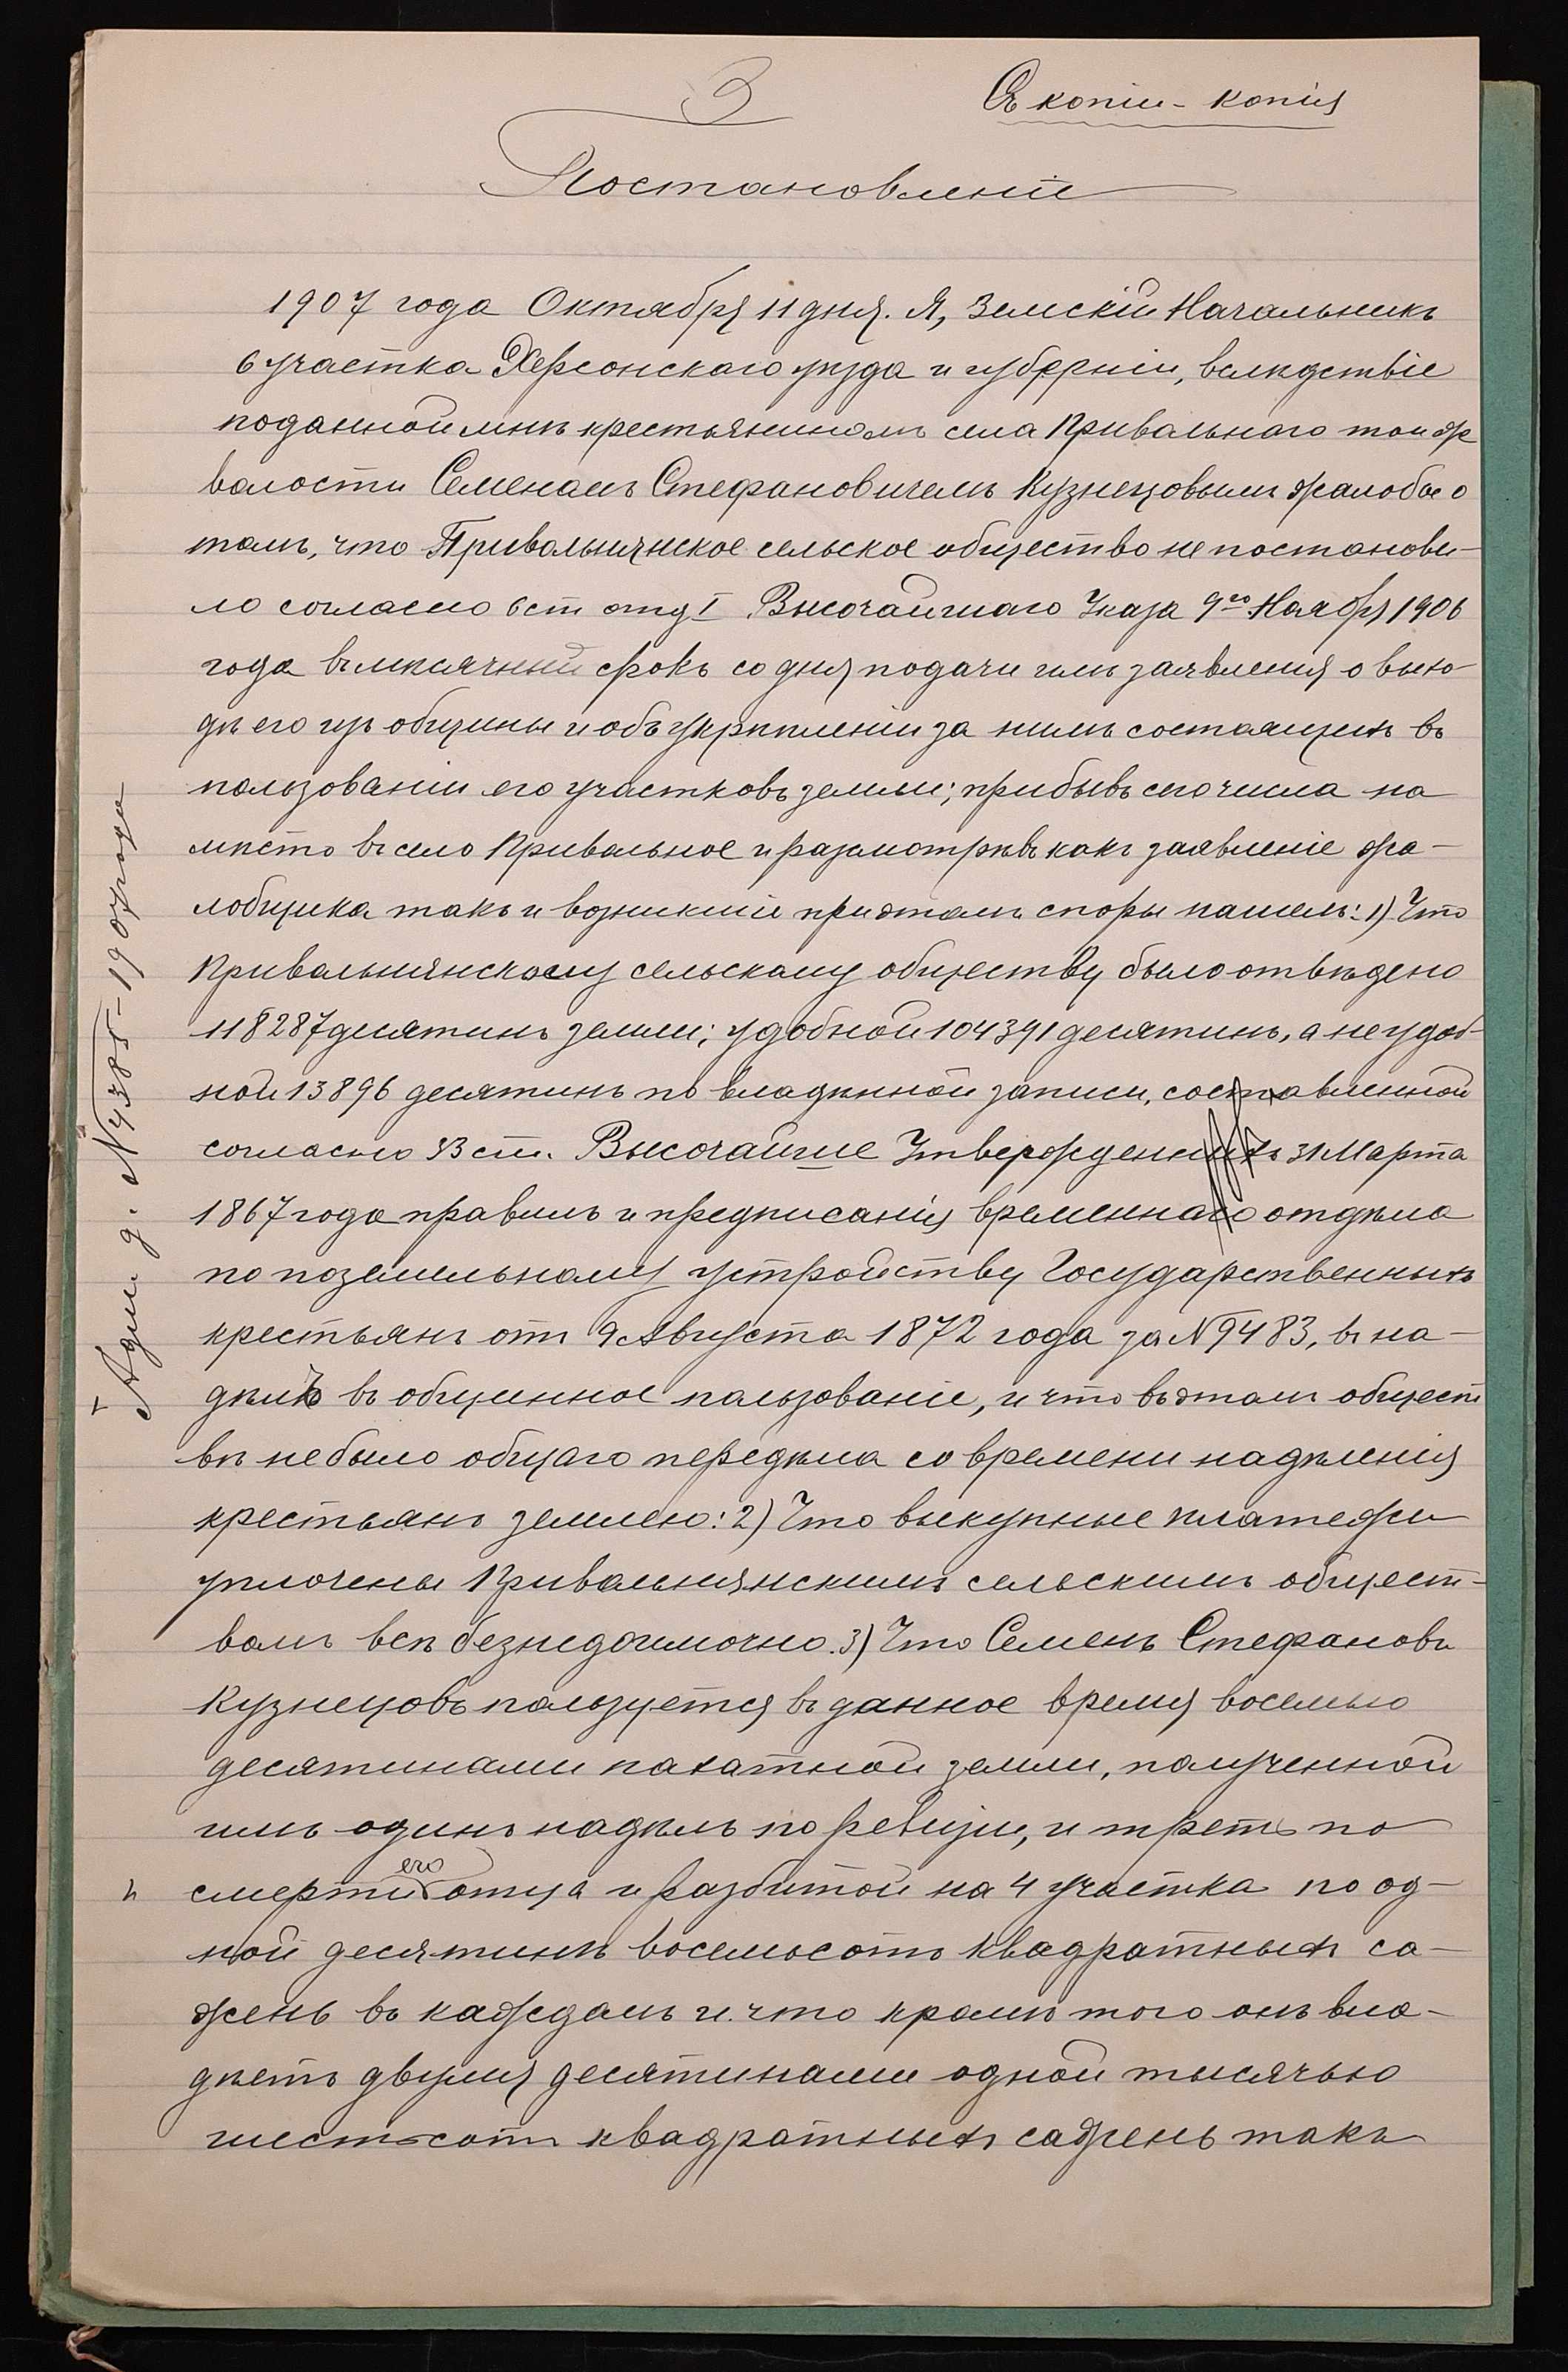 3
Съ копіи - копія
Постановленіе
1907 года Октября 11 дня. Я, Земскій Начальникъ
6 участка Херсонскаго уѣзда и губерніи, вслѣдствіе
поданной мнѣ крестьяниномъ села Привольнаго той же
волости Семеномъ Стефановичемъ Кузнецовымъ жалобы о
томъ, что Привольнянское сельское общество не постанови-
ло согласно 6 ст отд I Высочайшаго Указа 9го Ноября 1906
года въ мѣсячный срокъ со дня подачи имъ заявленія о выхо-
дѣ его изъ общины и объ укрѣпленіи за нимъ состоящихъ въ
пользованіи его участковъ земли; прибывъ сего числа на
мѣсто въ село Привольное и разсмотрѣвъ какъ заявленіе жа-
лобщика такъ и возникшіе при этомъ споры нашелъ: 1) Что
Привольнянскому сельскому обществу было отведено
118287 десятинъ земли; удобной 104391 десятинъ, а неудоб-
ной 13896 десятинъ по владѣнной записи, составленной
согласно 33 ст. Высочайше Утвержденныхъ 31 Марта
1867 года правилъ и предписанія временнаго отдѣла
по поземельному устройству Государственныхъ
крестьянъ отъ 9 Августа 1872 года за № 9483, въ на-
дѣлъ въ общинное пользованіе, и что въ этомъ общест
вѣ не было общаго передѣла со времени надѣленія
крестьянъ землею: 2) Что выкупные платежи
уплочены Привольнянскимъ сельскимъ общест-
вомъ всѣ безнедоимочно. 3) Что Семенъ Стефановъ
Кузнецовъ пользуется въ данное время восемью
десятинами пахатной земли, полученной
имъ одинъ надѣлъ по ревизіи, и треть по
смерти его отца и разбитой на 4 участка по од-
ной десятинѣ восемьсотъ квадратныхъ са-
жень въ каждомъ и что кромѣ того онъ вла-
дѣетъ двумя десятинами одной тысячью
шестьсотъ квадратныхъ сажень такъ
Адм. д. № 4385 - 1907 года